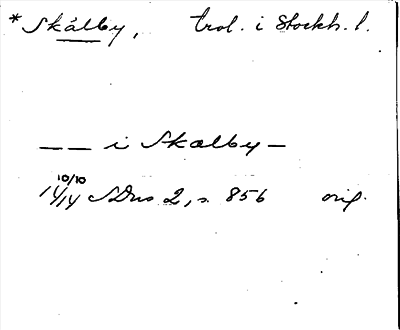 *Skálby, trol. i Stockh. l.
— — i Skalby —
10/10
14/14 SDns 2, s. 856 orig.